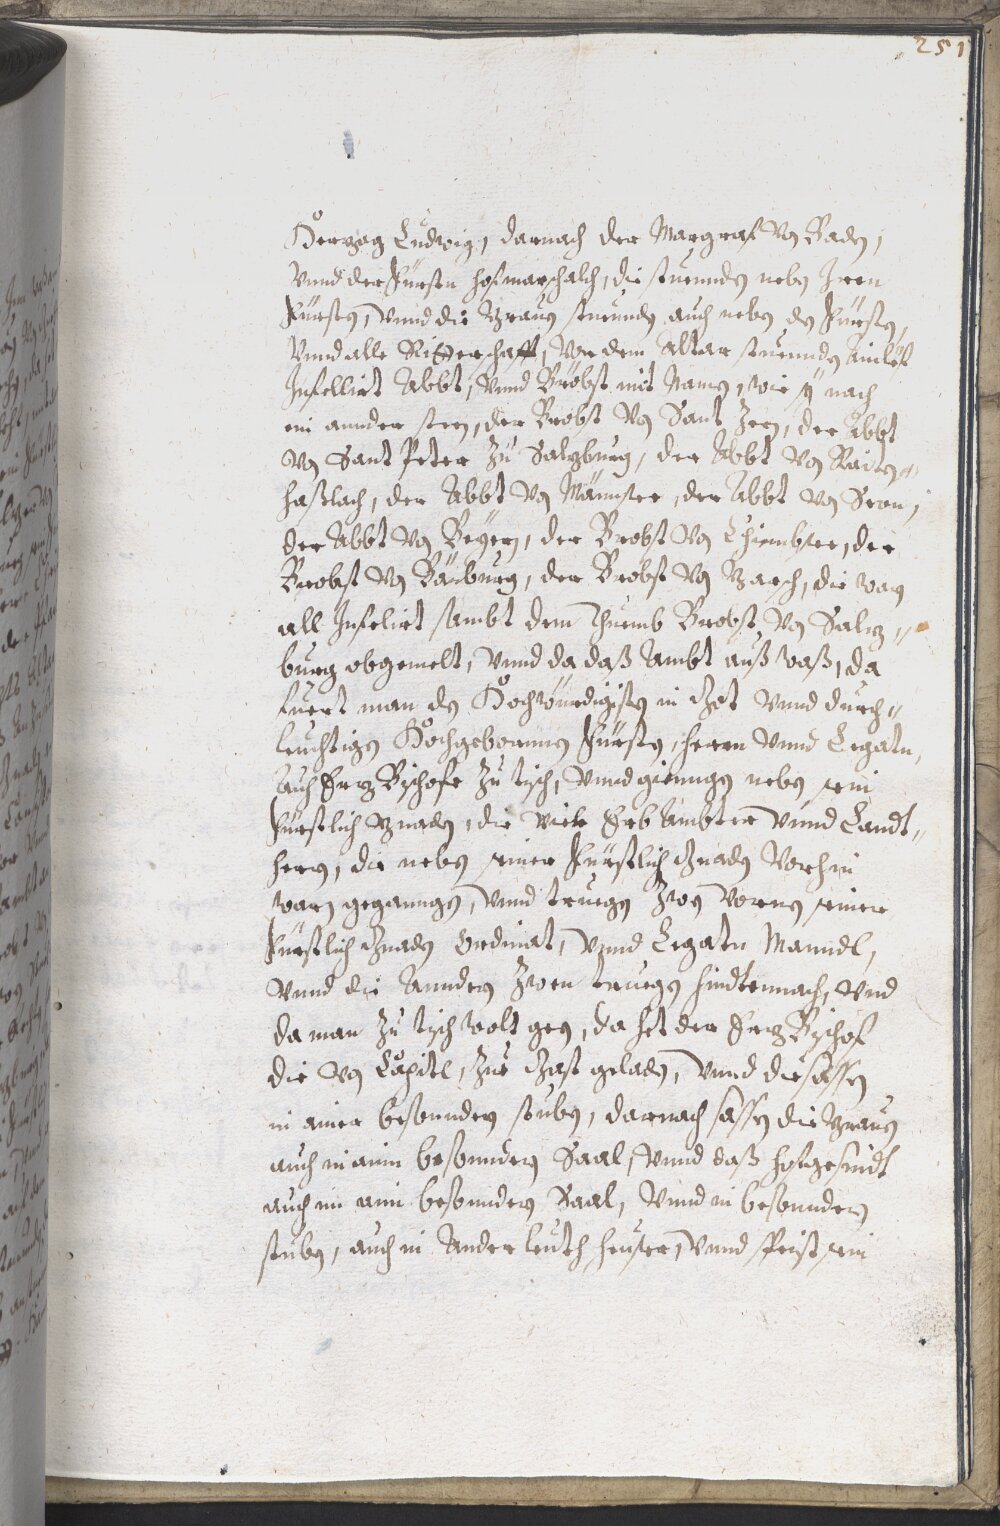 251
Herzog Ludwig, darnach der Margraf von Baden,
Vnnd der Fürsten hofmarschalch, die stuennden neben Iren
Fürsten, Vnnd die Grauen stuenndn auch neben den Fürsten,
Vnnd alle Ritterschafft, Vor dem Altar stuennden Ainlef
Infellirt Abbt, Vnnd Bröbst mit Namen, wie sÿ nach
ein annder steen, der Brobst von Sant Zen, der Abbt
von Sant Peter Zu Salzburg, der Abbt von Raiten=
haßlach, der Abbt von Männster, der Abbt von Seon,
der Abbt von Beÿern, der Brobst von Chiembsee, der
Brobst von Bäuburg, der Brobst von Garsch, die warn
all Infelirt sambt dem Thuemb Brobst von Salz=
burg obgemelt, Vnnd da daß Ambt auß waß, da
fuert man den Hochwürdigisten in Got Vnnd durch=
leuchtigen Hochgebornnen Fürsten, herrn Vnnd Legatn,
Auch Erz Bischofe Zu tisch, Vnnd giengen neben sein
Fürstlich Gnaden, die Vier Erb Ämbter Vnnd Landt=
herrn, die neben seiner Fürstlich Gnaden Vorhin
warn geganngen, Vnnd truegen Zwen Vornen seiner
Fürstlich Gnaden Ordinat, Vnnd Legatn Manndl,
Vnnd die Anndern Zwen truegen hindtennach, Vnd
da man Zu tisch wolt gen, da het der Erz Bischof
die von Capitl, Zue Gast geladen, Vnnd die sassen
in ainer besonndern stuben, darnach sassen die Grauen
auch in ainn besonndern Saal, Vnnd daß hofgesindt
auch inn ainn besonndern Saal, Vnnd in besonndern
stuben, auch in Ander leuth heuser, Vnnd speist sein